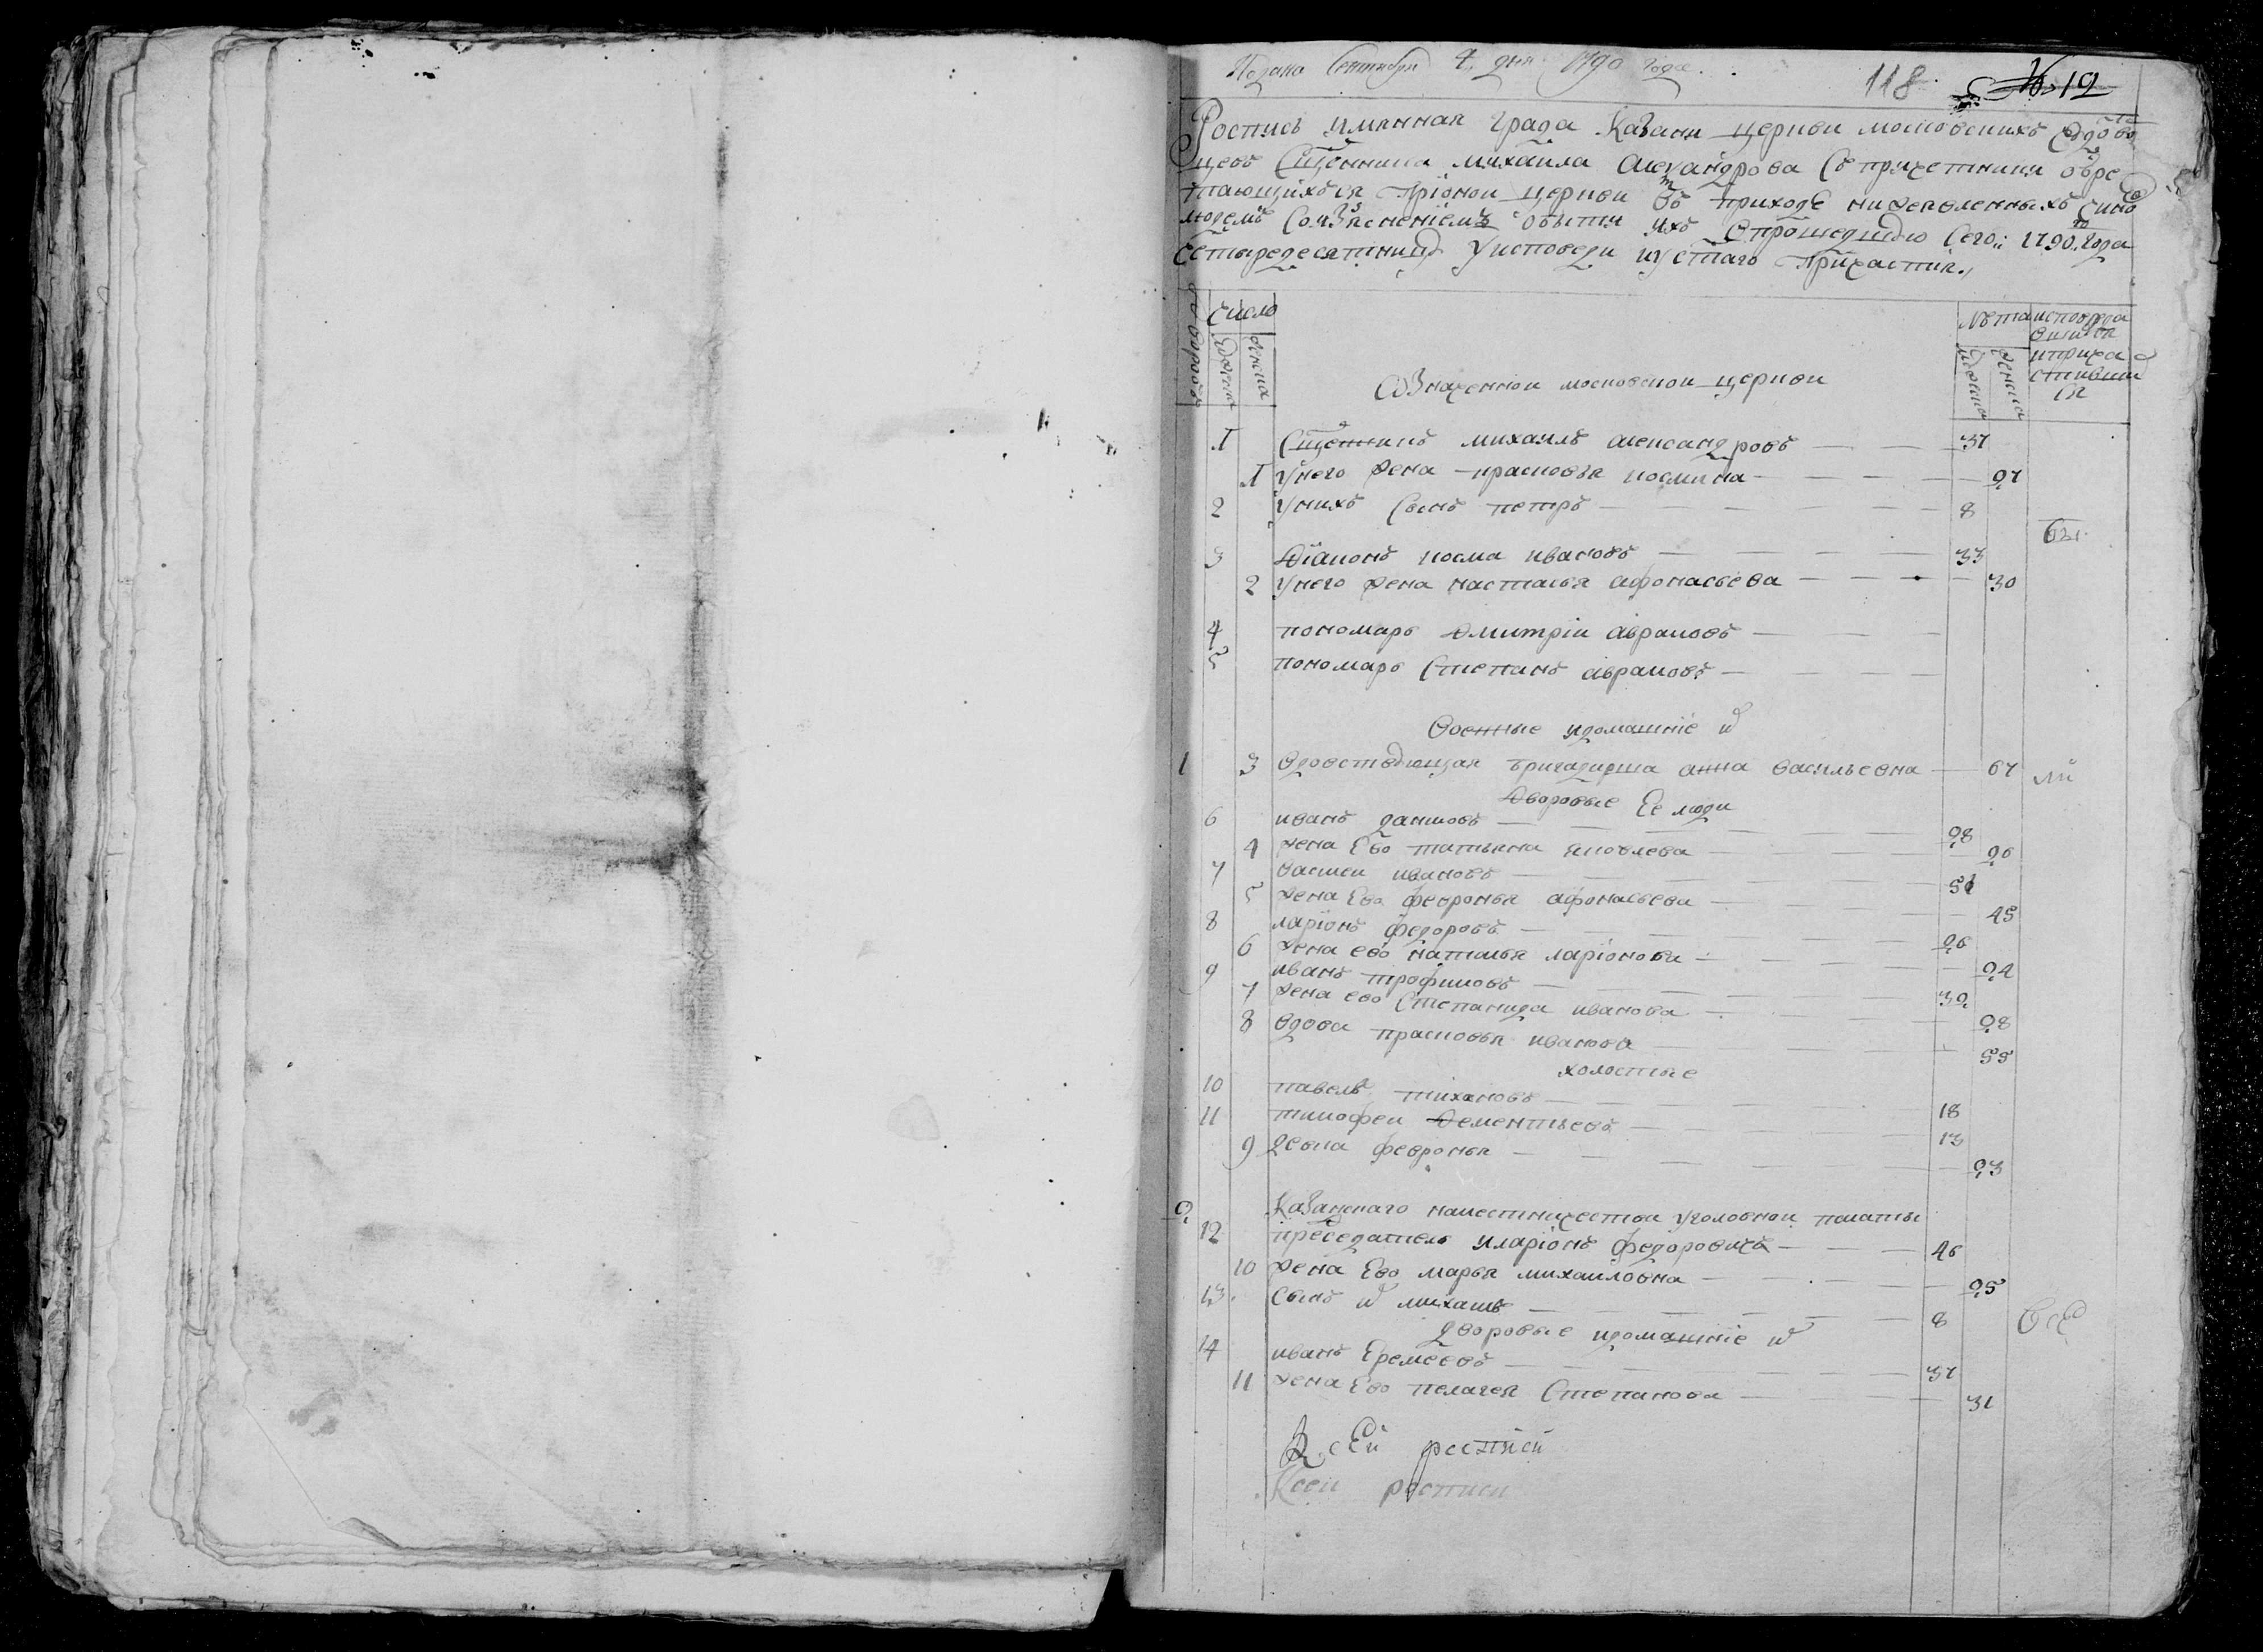 Подана Сентября 4 дня 1790 года.
118. № 12
Роспись именная града Казани церкви московскихъ чюдотво
цовъ Сщенника михаила Алеѯандрова Съ причетники обре
тающихъся прионой церкви въ приходе нижеявленныхъ чиновъ
людемъ Соизъяснениемъ обытии ихъ Впрошедшую сего 1790 года
Четыредесятницу Уисповеди иустаго причастия.
число
лѣта
исповеда
вшихся
ипричас
тившихся
дворовъ
мужеска
женска
мужеска
женска
Означенной московской церкви
1 Сщенникъ михаилъ александровъ 37
1 Унего жена прасковья космина 27
2 Унихъ Сынъ петръ 8
3 Диаконъ косма ивановъ 33
2 Унего жена настасья афонасьева 30
4 пономарь Дмитрій авраамовъ
5 пономарь Степанъ авраамовъ
Военные идомашніе ихъ
1 3 вдовствующая бригадирша анна васильевна 67
Дворовые Ее люди
6 иванъ даниловъ 28
4 жена Ево татьяна яковлева 26
7 василеи ивановъ
5 жена Ево февронья афонасьева 45
8 ларіонъ федоровъ 26
6 жена ево наталья ларіонова 24
9 иванъ трофимовъ 32
7 жена ево Степанида иванова 28
8 вдова прасковья иванова 55
холостые
10 павелъ тихановъ 18
11 тимофеи Дементьевъ 13
9 девка февронья 23
2 Казанскаго наместничества уголовной палаты
12 председатель иларіонъ федоровичь 46
10 жена Ево марья михаиловна 25
13 Сынъ ихъ михаилъ 8
дворовые идомашніе ихъ
14 иванъ Еремеевъ 37
11 жена Ево пелагея Степанова 31
Всѣ
Къ сей росписи
Ксеи росписи